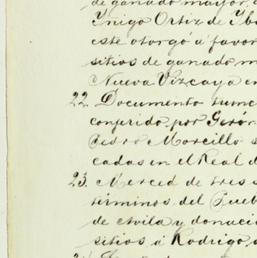 de ganado mayor,
Ynigo Ortiz de Yba
este otorgó á favor
sitios de ganado m
Nueva Vizcaya en
22. Documento
conferido, por Geró
Pedro Morcillo
cadas en el Real d
23. Merced de tres s
términos del Pueb
de Avila y donació
sitios á Rodrigo,